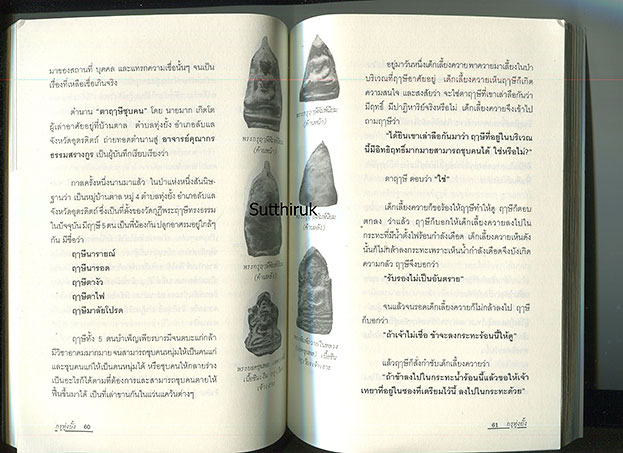 มาของสถานที่ บุคคล และแทรกความเชื่อนั้นๆ จนเป็น
เรื่องที่เหลือเชื่อเกินจริง
ตำนาน "ตาฤๅษีชุบคน" โดย นายมาก เกิดโต
ผู้เล่าอาศัยอยู่ที่บ้านตาล ตำบลทุ่งยั้ง อำเภอลับแล
จังหวัดอุตรดิตถ์ ถ่ายทอดตำนานสู่ อาจารย์คุณากร
ธรรมสรางกูร เป็นผู้บันทึกเรียบเรียงว่า
กาลครั้งหนึ่งนานมาแล้ว ในป่าแห่งหนึ่งสันนิษ-
ฐานว่า เป็นหมู่บ้านตาล หมู่ 4 ตำบลทุ่งยั้ง อำเภอลับแล
จังหวัดอุตรดิตถ์ ซึ่งเป็นที่ตั้งของวัดกุฏีพระฤๅษีทรงธรรม
ในปัจจุบัน มีฤๅษี 5 ตน เป็นพี่น้องกัน ปลูกอาศรมอยู่ใกล้ๆ
กัน มีชื่อว่า
ฤๅษีนารายณ์
ฤๅษีนารอด
ฤๅษีตางัว
ฤๅษีตาไฟ
ฤๅษีมาลัยโปรด
ฤๅษีทั้ง 5 ตนบำเพ็ญเพียรบารมีจนตบะแก่กล้า
มีวิชาอาคมมากมาย จนสามารถชุบคนหนุ่มให้เป็นคนแก่
และชุบคนแก่ให้เป็นคนหนุ่มได้ หรือชุบคนให้กลายร่าง
เป็นอะไรก็ได้ตามที่ต้องการและสามารถชุบคนตายให้
ฟื้นขึ้นมาได้ เป็นที่เล่าขานกันในแว่นแคว้นต่างๆ
กรุทุ่งยั้ง 60
พระกรุฤๅษีพิมพ์นิยม
(ด้านหน้า)
พระกรุฤๅษีพิมพ์นิยม
(ด้านหลัง)
พระกรุฤๅษีพิมพ์นิยม
(ด้านหน้า)
(ด้านหลัง)
Sutthiruk
อยู่มาวันหนึ่งเด็กเลี้ยงควายพาควายมาเลี้ยงในป่า
บริเวณที่ฤๅษีอาศัยอยู่ เด็กเลี้ยงควายเห็นฤๅษีก็เกิด
ความสนใจ และสงสัยว่า จะใช่ตาฤๅษีที่เขาเล่าลือกันว่า
มีฤทธิ์ มีปาฏิหาริย์จริงหรือไม่ เด็กเลี้ยงควายจึงเข้าไป
ถามฤๅษีว่า
"ได้ยินเขาเล่าลือกันมาว่า ฤๅษีที่อยู่ในบริเวณ
นี้มีอิทธิฤทธิ์มากมายสามารถชุบคนได้ ใช่หรือไม่?"
ตาฤๅษี ตอบว่า "ใช่"
เด็กเลี้ยงควายก็ขอร้องให้ฤๅษีทำให้ดู ฤๅษีก็ตอบ
ตกลง ว่าแล้ว ฤๅษีก็บอกให้เด็กเลี้ยงควายลงไปใน
กระทะที่มีน้ำตั้งไฟร้อนกำลังเดือด เด็กเลี้ยงควายเห็นดัง
นั้นก็ไม่กล้าลงกระทะเพราะเห็นน้ำกำลังเดือดจึงบังเกิด
ความกลัว ฤๅษีจึงบอกว่า
"รับรองไม่เป็นอันตราย"
จนแล้วจนรอดเด็กเลี้ยงควายก็ไม่กล้าลงไป ฤๅษี
ก็บอกว่า
"ถ้าเจ้าไม่เชื่อ ข้าจะลงกระทะร้อนนี้ให้ดู"
แล้วฤๅษีก็สั่งกำชับเด็กเลี้ยงควายว่า
"ถ้าข้าลงไปในกระทะน้ำร้อนนี้แล้วขอให้เจ้า
เทยาที่อยู่ในซองที่เตรียมไว้นี้ ลงไปในกระทะด้วย"
61 กรุทุ่งยั้ง